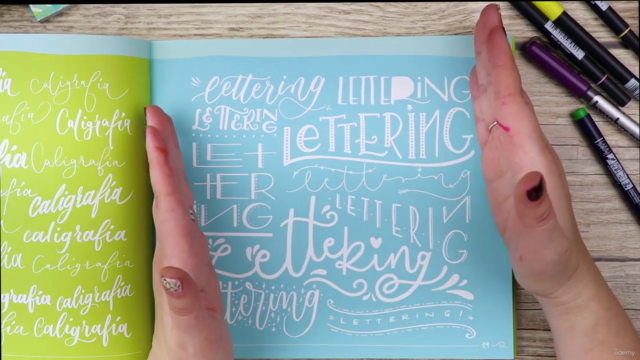 caligrafía
Caligrafía
Caligrafía
caligrafía
caligrafía
caligrafía
caligrafía
caligrafía
Caligrafía
lettering
LETTERING
LETTERING
LETTERING
LET
TER
ING
lettering
LETTERING
Lettering
LETTERING!
Udemy